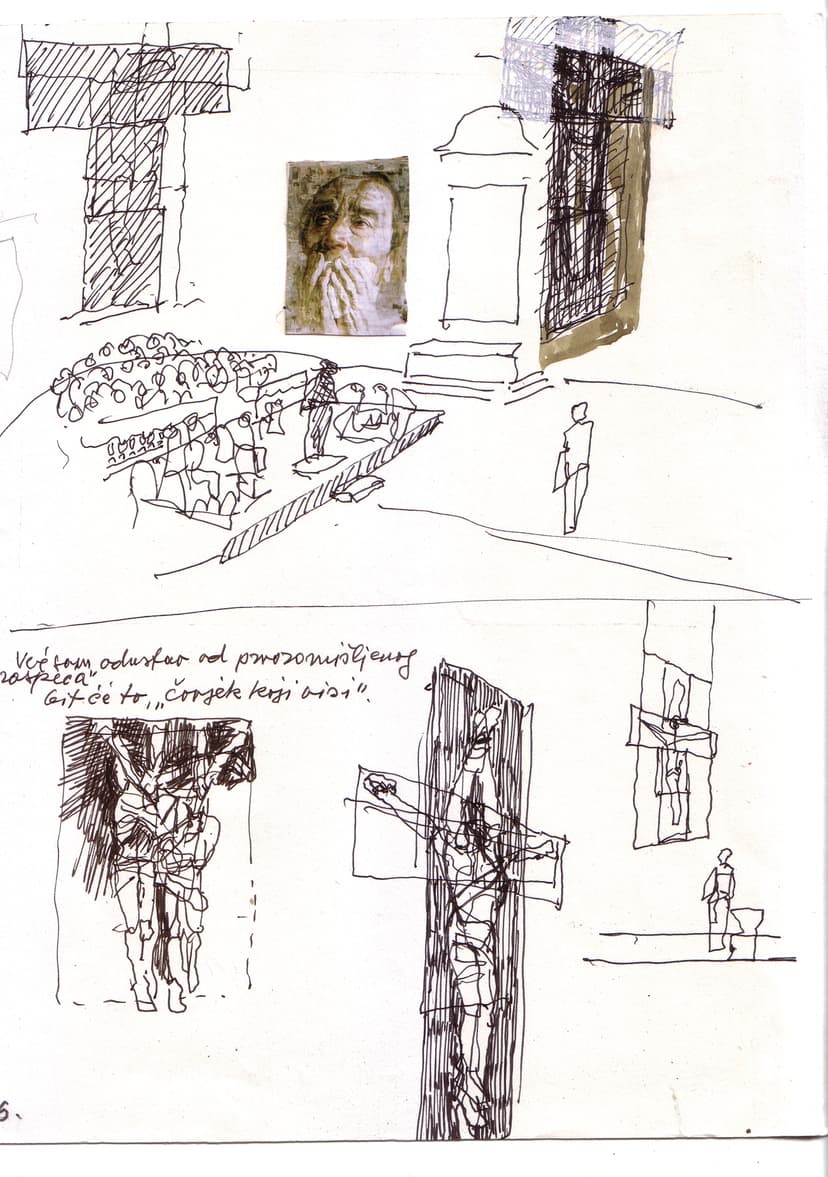 Već sam odustao od prvozamišljenog
raspeća"
Bit će to „čovjek koji visi".
6.